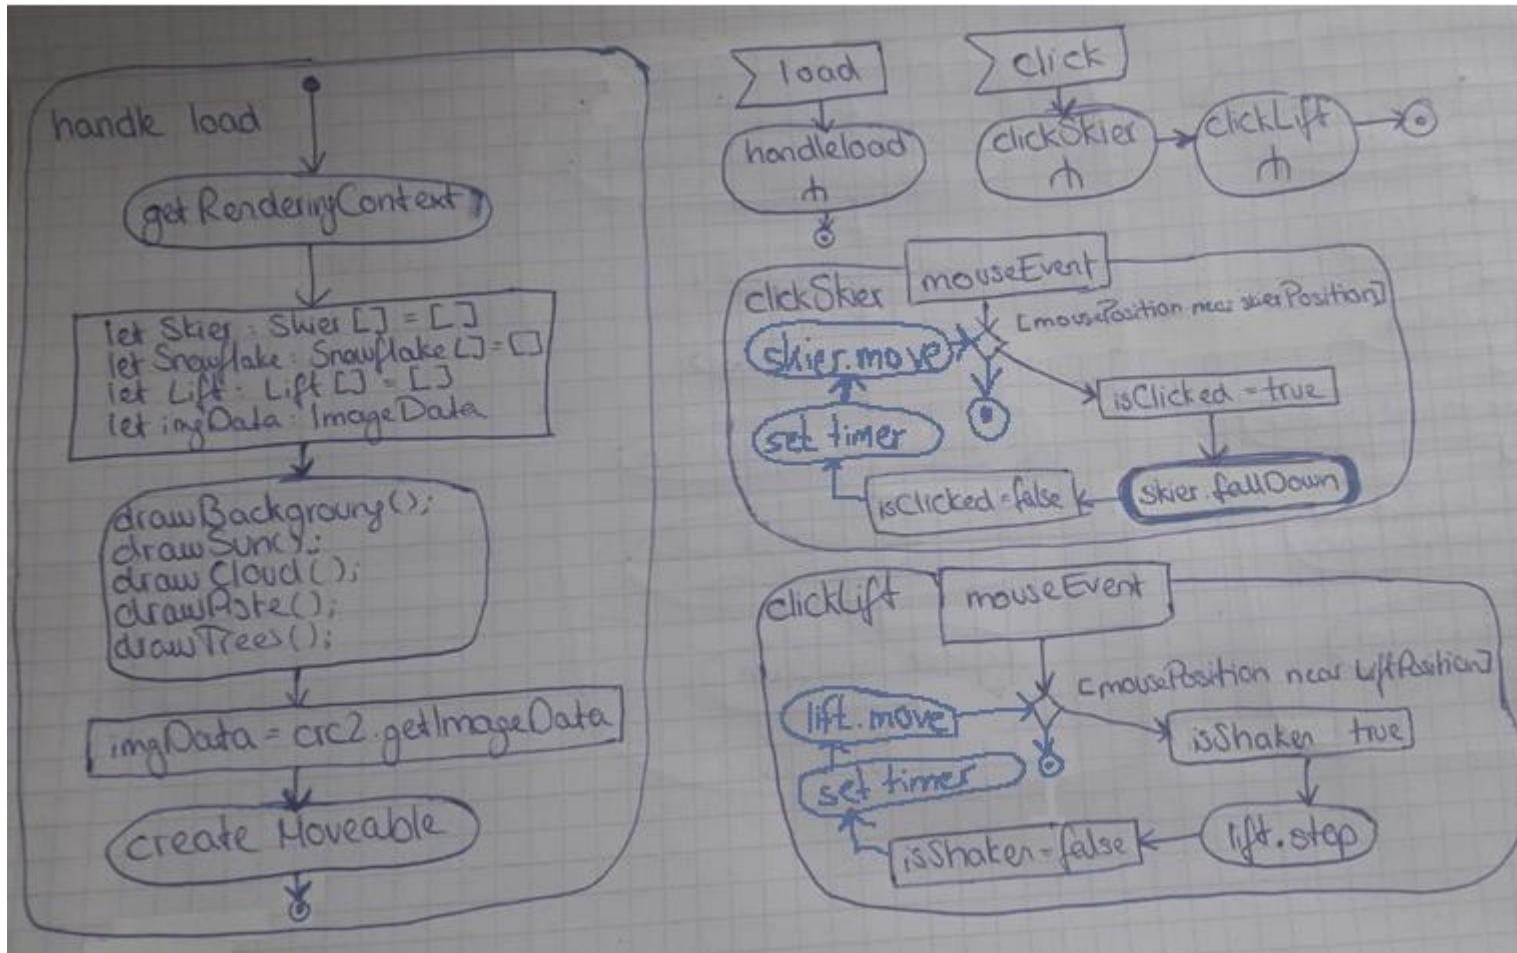 handle load
getRenderingContext
let Skier : Skier [] = []
let Snowflake : Snowflake [] = []
let Lift : Lift [] = []
let imgData : ImageData
drawBackgroung();
drawSun();
drawCloud();
drawPiste();
drawTrees();
imgData = crc2.getImageData
create Moveable
load
handleload
click
clickSkier
clickLift
clickSkier
mouseEvent
[mousePosition near skierPosition]
skier.move
isClicked = true
set timer
isClicked = false
skier.fallDown
clickLift
mouseEvent
[mousePosition near LiftPosition]
lift.move
isShaken true
set timer
isShaken = false
lift.stop